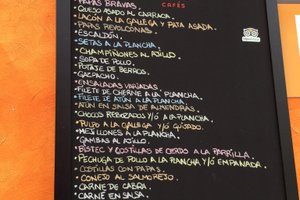 PAPAS BRAVAS. CAFÉS
QUESO ASADO AL CARBACA.
LACÓN A LA GALLEGA Y PATA ASADA.
PAPAS REVOLCONAS.
ESCALDÓN.
SETAS A LA PLANCHA.
CHAMPIÑONES AL AJILLO.
SOPA DE POLLO.
POTAJE DE BERROS.
GAZPACHO.
ENSALADAS VARIADAS.
FILETE DE CHERNE A LA PLANCHA.
FILETE DE ATÚN A LA PLANCHA.
ATÚN EN SALSA DE ALMENDRAS.
CHOCOS REBOZADOS Y/Ó A LA PLANCHA.
PULPO A LA GALLEGA Y/Ó GUISADO.
MEJILLONES A LA PLANCHA.
GAMBAS AL AJILLO.
BISTEC Y COSTILLAS DE CERDO A LA PARRILLA.
PECHUGA DE POLLO A LA PLANCHA Y/Ó EMPANADA.
COSTILLAS CON PAPAS.
CONEJO AL SALMOREJO.
CARNE DE CABRA.
CARNE EN SALSA.